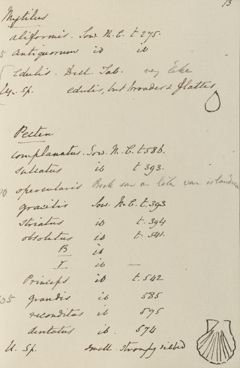 13
Mytilus
aliformis. Sow. M.C. t 275.
5 antiquorum ib ib
edulis. Dill. Tab. very like
Sp. edulis, but broader & flatter
Pecten
complanatus. Sow. M.C. t 586.
sulcatus ib t 393.
opercularis
gracilis Sow. M.C. t 393
striatus ib t 394
obsoletus ib t. 541.
β ib
γ ib —
Princeps ib t. 542
grandis ib 585
reconditus ib 575
dentatus ib 574
U. Sp. small strongly ribbed